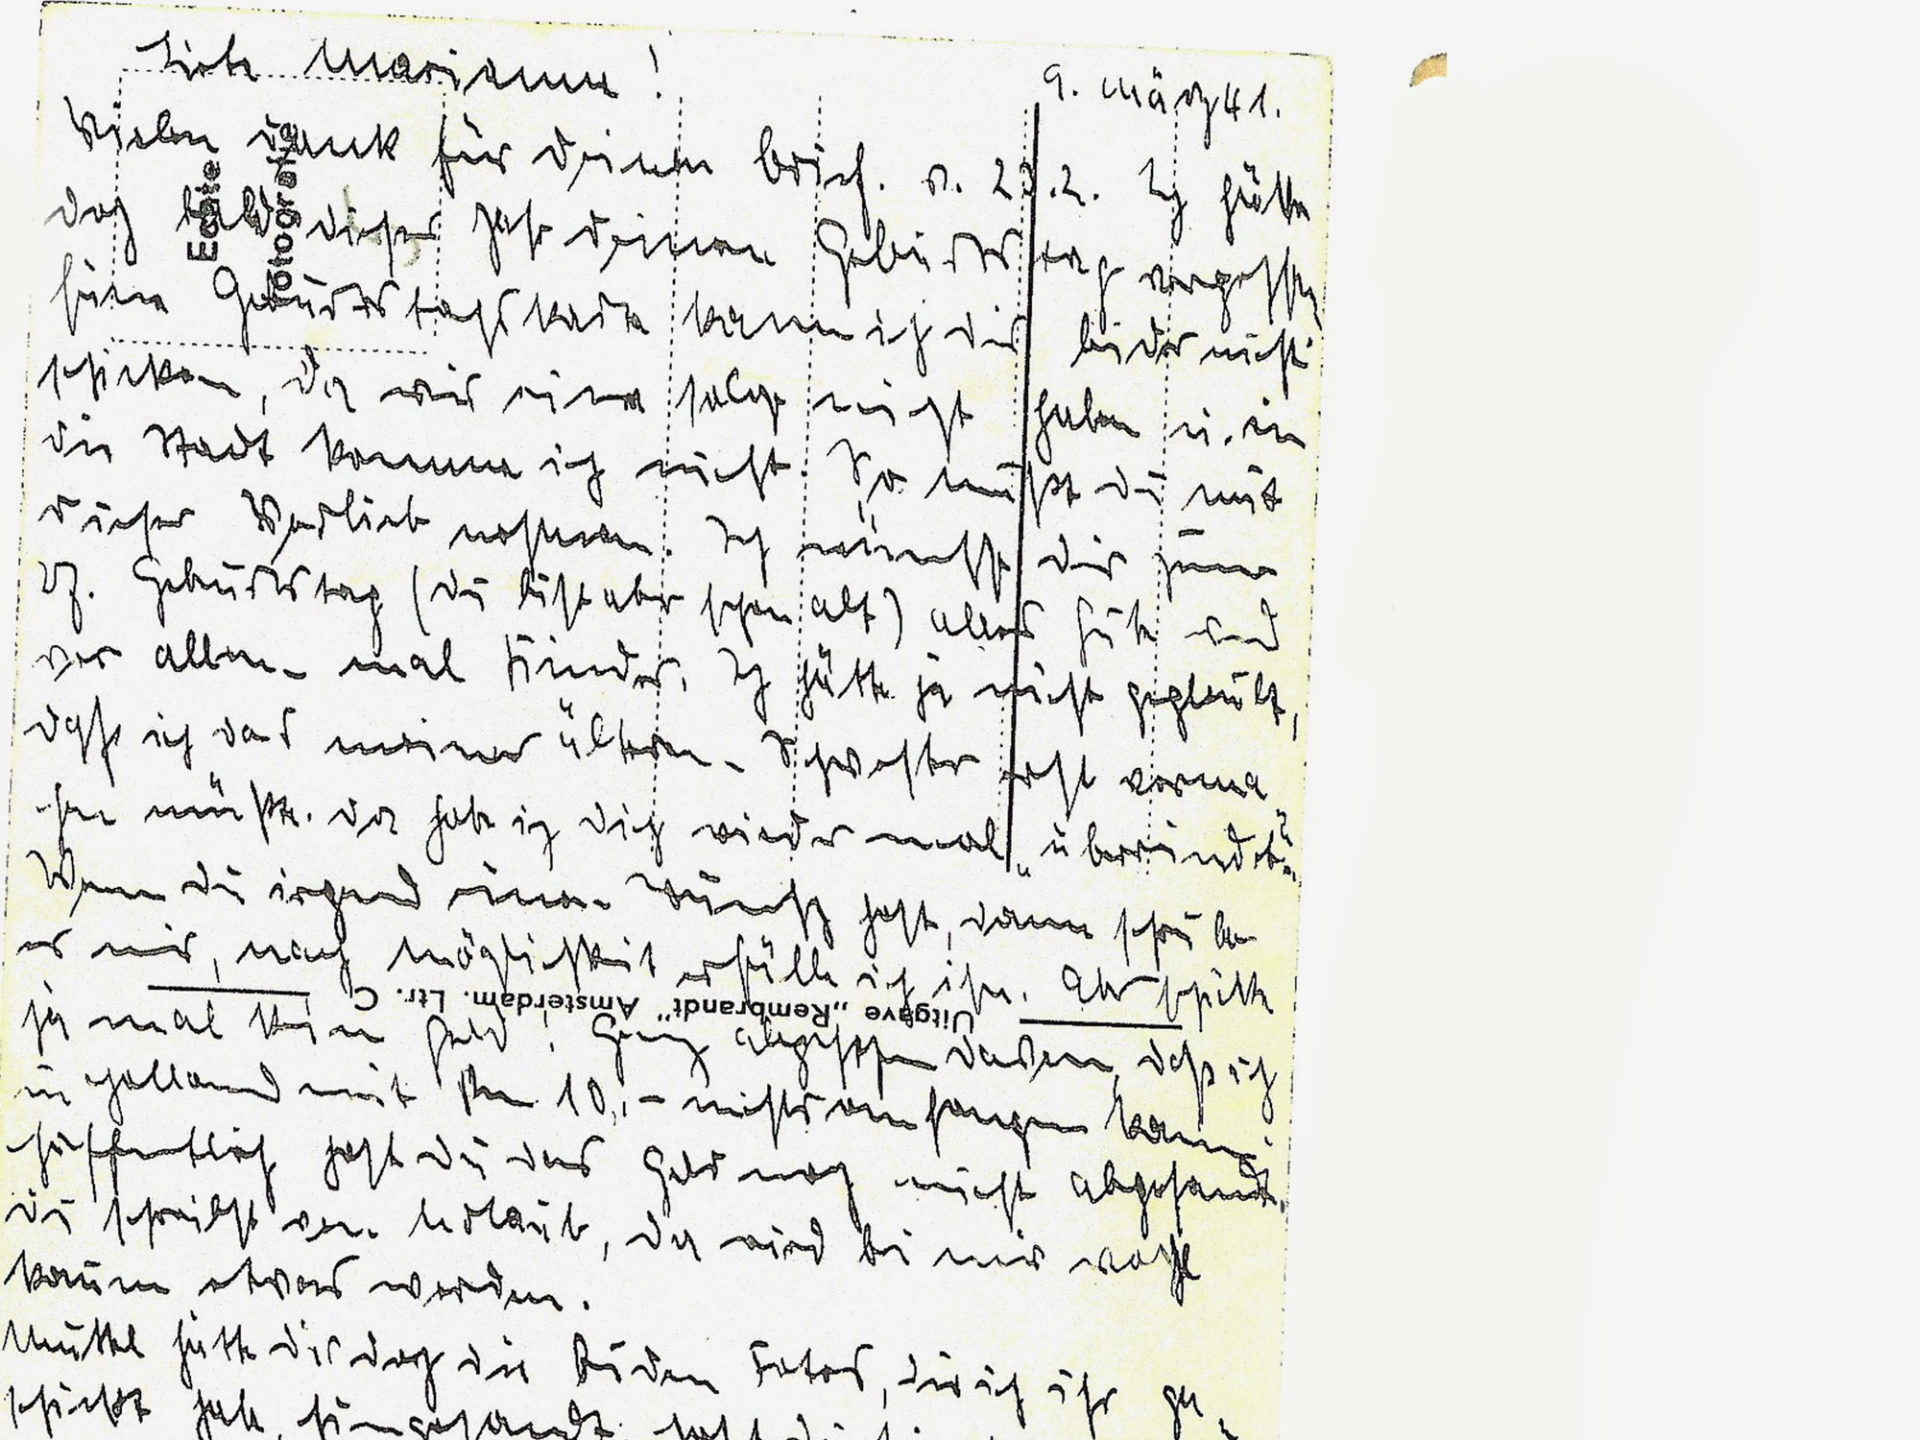 Liebe Marianne!
9. März 41.
Vielen Dank für deinen Brief. v. 23.2. Ich hätte
doch bald dieses Jahr deinen Geburtstag vergessen
Eine Geburtstagskarte kann ich dir leider nicht
schicken, da wir eine solche nicht haben u. in
die Stadt komme ich nicht. So mußt du mit
dieser Vorlieb nehmen. Ich wünsche dir zum
27. Geburtstag (du bist aber schon alt) alles Gute und
vor allem mal Kinder. Ich hätte ja nicht geglaubt,
daß ich das meiner älteren Schwester erst vorma-
chen müßte. Da habe ich dich wieder mal „überrundet“.
Wenn du irgend einen Wunsch hast, dann schreibe
es mir, nach Möglichkeit erfülle ich ihn. Aber schicke
ja mal kein Geld! Ganz abgesehen davon, daß ich
in Holland mit 10,- nichts anfangen kann.
Hoffentlich hast du das Geld noch nicht abgesandt.
Du schreibst von Urlaub, da wird bei mir wohl
kaum etwas werden.
Mutti hätte dir doch die beiden Fotos, die ich ihr ge-
schickt habe, hingesandt.
Echte
Fotografie
Uitgave „Rembrandt” Amsterdam. Ltr. C